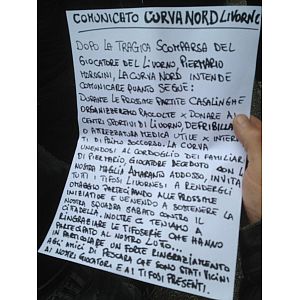 COMUNICATO CURVA NORD LIVORNO
DOPO LA TRAGICA SCOMPARSA DEL
GIOCATORE DEL LIVORNO, PIERMARIO
MOROSINI, LA CURVA NORD INTENDE
COMUNICARE QUANTO SEGUE:
DURANTE LE PROSSIME PARTITE CASALINGHE
ORGANIZZEREMO RACCOLTE X DONARE AI
CENTRI SPORTIVI DI LIVORNO, DEFRIBILLA
O ATTREZZATURA MEDICA UTILE X INTER
TI DI PRIMO SOCCORSO. LA CURVA
UNENDOSI AL CORDOGLIO DEI FAMILIARI
DI PIERMARIO, GIOCATORE DECEDUTO CON LA
NOSTRA MAGLIA AMARANTO ADDOSSO, INVITA
TUTTI I TIFOSI LIVORNESI A RENDERGLI
OMAGGIO PARTECIPANDO ALLE PROSSIME
INIZIATIVE E VENENDO A SOSTENERE LA
NOSTRA SQUADRA SABATO CONTRO IL
CITTADELLA. INOLTRE CI TENIAMO A
RINGRAZIARE LE TIFOSERIE CHE HANNO
PARTECIPATO AL NOSTRO LUTTO...
IN PARTICOLARE UN FORTE RINGRAZIAMENTO
AGL'AMICI DI PESCARA CHE SONO STATI VICINI
AI NOSTRI GIOCATORI E AI TIFOSI PRESENTI.